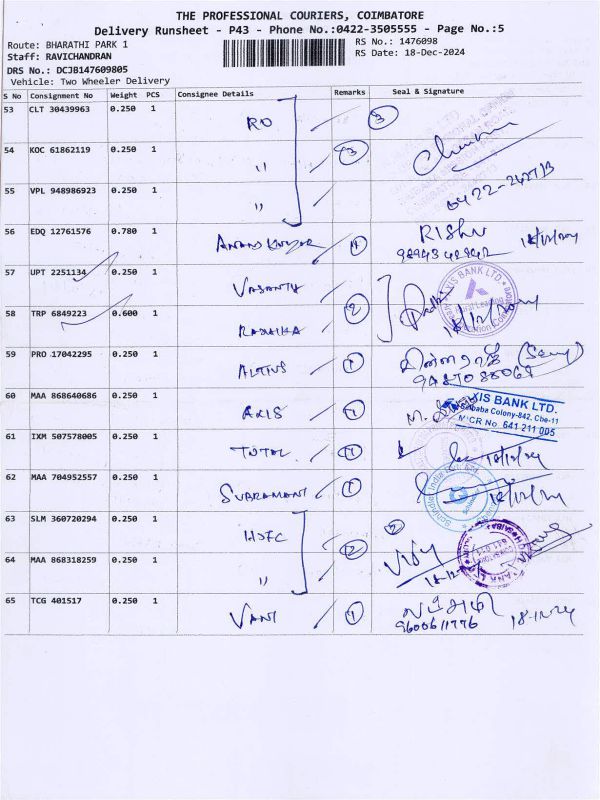 THE PROFESSIONAL COURIERS, COIMBATORE
Delivery Runsheet - P43 - Phone No.:0422-3505555 - Page No.:5
Route: BHARATHI PARK 1
RS No.: 1476098
Staff: RAVICHANDRAN
RS Date: 18-Dec-2024
DRS No.: DCJB147609805
Vehicle: Two Wheeler Delivery
S No Consignment No Weight PCS Consignee Details Remarks Seal & Signature
53 CLT 30439963 0.250 1 RO 3
54 KOC 61862119 0.250 1 " 3
55 VPL 948986923 0.250 1 "
56 EDQ 12761576 0.780 1 ANAND KUMAR 1 RISHV
18/12/24
57 UPT 2251134 0.250 1 VASANTH 2
AXIS BANK LTD.
58 TRP 6849223 0.600 1 RADHIKA 18/12/24
59 PRO 17042295 0.250 1 ALTIUS 1
60 MAA 868640686 0.250 1 AXIS 1
AXIS BANK LTD.
Saibaba Colony-842, Cbe-11
MICR No. 641 211 005
61 IXM 507578005 0.250 1 TOTAL 1 18/12/24
62 MAA 704952557 0.250 1 SUBAMANI 1 18/12/24
Schindler India Pvt. Ltd.
63 SLM 360720294 0.250 1 HDFC 2
64 MAA 868318259 0.250 1 "
65 TCG 401517 0.250 1 VANI 1
9600611776 18-12-24